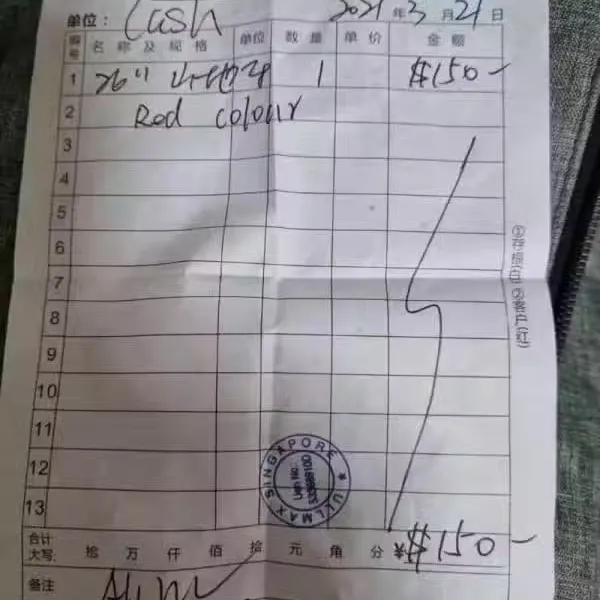 单位: Cash 2021 年 3 月 21 日
编号 名称及规格 单位 数量 单价 金额
1 26" 山地车 1 $150-
2 Red colour
3
4
5
6
7
8
9
10
11
12
13
合计大写: 拾 万 仟 佰 拾 元 角 分 ¥ $150-
备注
①存根(白) ②客户(红)
ULLMAX SINGAPORE